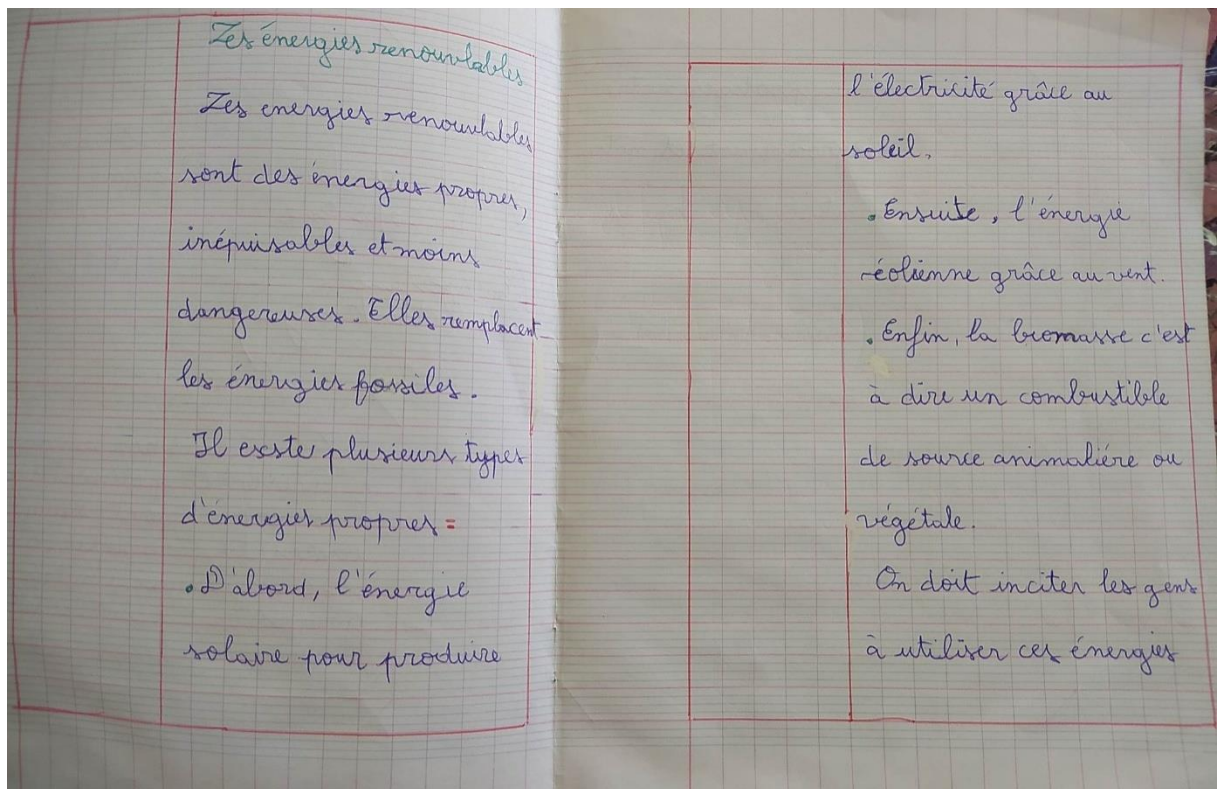 Les énergies renouvlables
Les energies renouvlables
sont des énergies propres,
inépuisables et moins
dangereuses. Elles remplacent
les énergies fossiles.
Il existe plusieurs types
d'énergies propres =
. D'abord, l'énergie
solaire pour produire
l'électricité grâce au
soleil.
. Ensuite, l'énergie
éolienne grâce au vent.
. Enfin, la biomasse c'est
à dire un combustible
de source animaliére ou
végétale.
On doit inciter les gens
à utiliser ces énergies